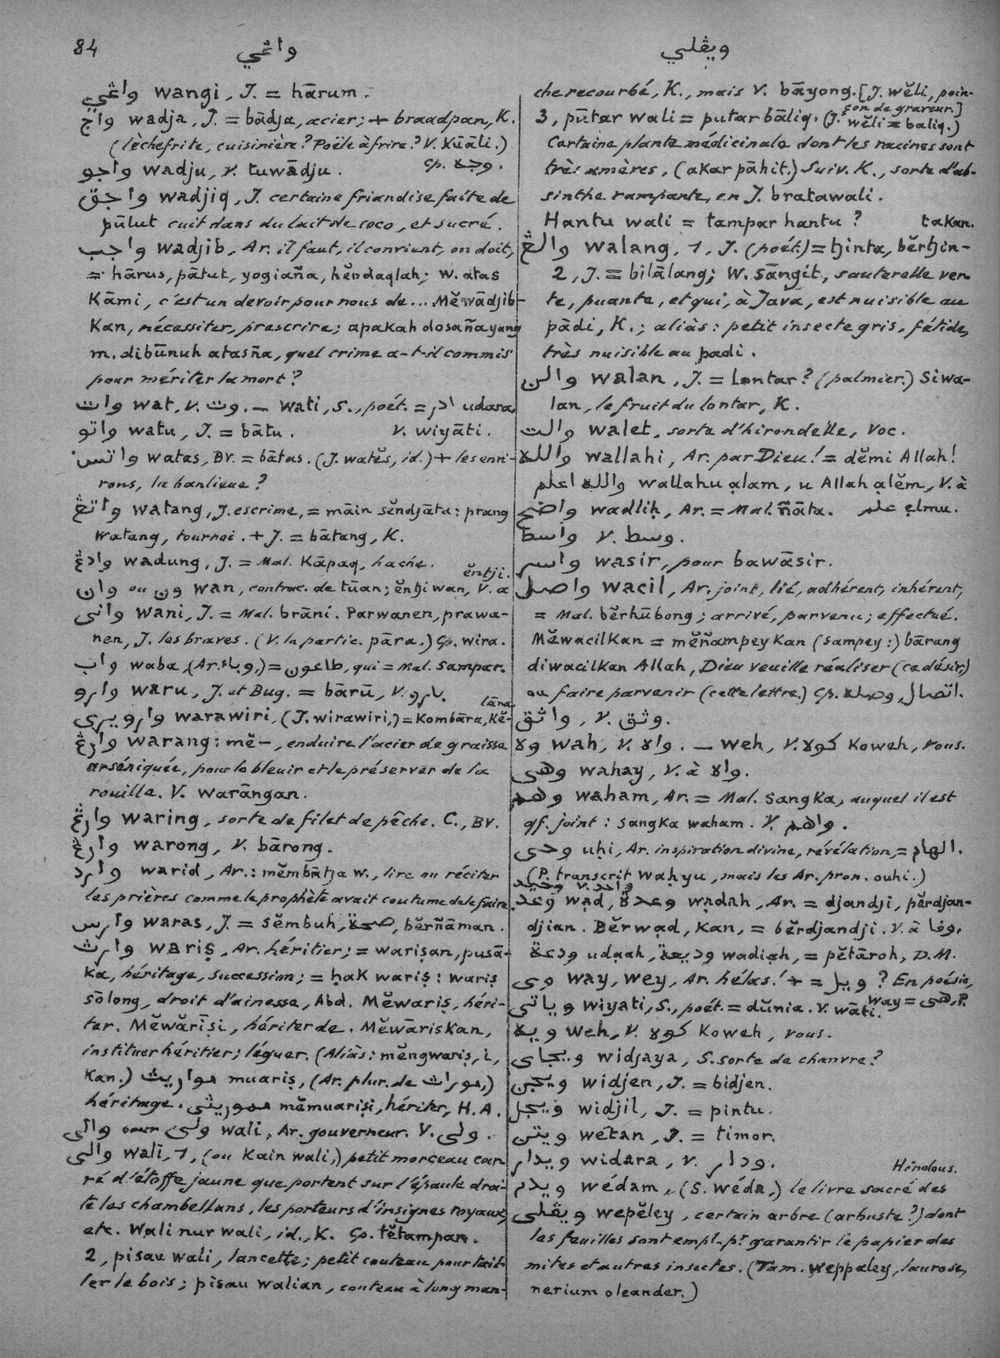 84
واڠي
ويڤلي
واڠي wangi, J. = hārum.
واج wadja, J. = bādja, acier; + braadpan, K.
(lèchefrite, cuisinière? Poële à frire? V. Kūāli.)
واجو wadju, V. tuwādju. Cp. وجه.
واجق wadjiq, J. certaine friandise faite de
pūlut cuit dans du lait de coco, et sucré.
واجب wadjib, Ar. il faut, il convient, on doit,
= hārus, pātut, yogiaña, hĕndaqlah; w. atas
Kāmi, c'est un devoir pour nous de... Mĕwādjib-
Kan, nécessiter, prescrire; apakah dosaña yang
m. dibūnuh atasña, quel crime a-t-il commis
pour mériter la mort?
وات wat, V. وت. — wati, S., poét. = ادر udara.
واتو watu, J. = bātu. V. wiyāti.
واتس watas, BV. = bātas. (J. watĕs, id.) + les envi-
rons, la banlieue?
واتڠ watang, J. escrime, = māin sĕndjāta: prang
watang, tournoi. + J. = bātang, K.
وادڠ wadung, J. = Mal. Kāpaq, hache.
ĕntji.
وان ou ون wan, contrac. de tūan; ĕntji wan, V. a
وانى wani, J. = Mal. brāni. Parwanen, prawa-
nen, J. les braves. (V. la partic. pāra.) Cp. wira.
واب waba, (Ar. وباء,) = طاعون, qui = Mal. sampar.
وارو waru, J. et Bug. = bārū, V. بارو.
lāna
وارويرى warawiri, (J. wirawiri,) = Kombāra, Kĕ-
وارڠ warang: mĕ-, enduire l'acier de graisse
arséniquée, pour le bleuir et le préserver de la
rouille. V. warāngan.
وارڠ waring, sorte de filet de pêche. C., BV.
وارڠ warong, V. bārong.
وارد warid, Ar.: mĕmbātja w., lire ou réciter
les prières comme le prophète avait coutume de le faire.
وارس waras, J. = sĕmbuh, صحة, bĕrñāman.
وارث wariṣ, Ar. héritier; = wariṣan, pusā-
ka, héritage, succession; = ḥak wariṣ: wariṣ
sōlong, droit d'ainesse, Abd. Mĕwariṣ, héri-
ter. Mĕwārīsi, hériter de. Mĕwāriskan,
instituer héritier; léguer. (Aliàs: mĕngwariṣ, i,
Kan.) مواريث muariṣ, (Ar. plur. de موراث,)
héritage. مموريثى mĕmuariṣi, hériter, H. A.
والى pour ولى wali, Ar. gouverneur. V. ولى.
والى wali, 1, (ou Kain wali,) petit morceau car-
ré d'étoffe jaune que portent sur l'épaule droi-
te les chambellans, les porteurs d'insignes royaux,
etc. Wali nur wali, id., K. Cp. tĕtampan.
2, pisau wali, lancette; petit couteau pour tail-
ler le bois; pisau walian, couteau à long man-
che recourbé, K., mais V. bāyong. [J. wĕli, poin-
çon de graveur.]
3, pūtar wali = putar bāliq. (J. wĕli = baliq.)
Certaine plante médicinale dont les racines sont
très amères, (akar pāhit.) Suiv. K., sorte d'ab-
sinthe rampante, en J. bratawali.
Hantu wali = tampar hantu? takan.
والڠ walang, 1, J. (poét.) = tjinta, bĕrtjin-
2, J. = bilālang; w. sāngit, sauterelle ver-
te, puante, et qui, à Java, est nuisible au
pādi, K.; aliàs: petit insecte gris, fétide,
très nuisible au padi.
والن walan, J. = lontar? (palmier.) Siwa-
lan, le fruit du lontar, K.
والت walet, sorte d'hirondelle, Voc.
والله wallahi, Ar. par Dieu! = dĕmi Allah!
والله اعلم wallahu ạlam, u Allah ạlĕm, V. à
واضح wadliḥ, Ar. = Mal. ñāta. علم ẹlmu.
واسط V. وسط.
واسر wasir, pour bawāsir.
واصل wacil, Ar. joint, lié, adhérent, inhérent,
= Mal. bĕrhūbong; arrivé, parvenu; effectué.
Mĕwacilkan = mĕñampeykan (sampey:) bārang
diwacilkan Allah, Dieu veuille réaliser (ce désir,)
ou faire parvenir (cette lettre.) Cp. وصله, اتصال.
واثق, V. وثق.
وه wah, V. واه. — weh, V. كوه koweh, vous.
وهى wahay, V. à واه.
وهم waham, Ar. = Mal. sangka, auquel il est
qf. joint: sangka waham. V. واهم.
وحى uḥi, Ar. inspiration divine, révélation, = الهام.
(P. transcrit waḥyu, mais les Ar. pron. ouhi.)
واحد V. وحيد
وعد wạd, وعدة wạdah, Ar. = djandji, pĕrdjan-
djian. Bĕrwạd, kan, = bĕrdjandji. V. à وفا,
ودعة udạah, وديعة wadiạh = pĕtāroh, D. M.
وى way, wey, Ar. hélas! + = ويل? En poésie,
way = هى, P.
وياتى wiyati, S., poét. = dŭnia. V. wāti.
ويه weh, V. كوه koweh, vous.
ويجاى widjaya, S. sorte de chanvre?
ويجن widjen, J. = bidjen.
ويجل widjil, J. = pintu.
ويتن wétan, J. = timor.
ويدار widara, V. ودار.
Hindous.
ويدم wédam, (S. wéda,) le livre sacré des
ويڤلى wepĕley, certain arbre (arbuste?) dont
les feuilles sont empl. pr garantir le papier des
mites et autres insectes. (Tam. weppaley, laurose,
nerium oleander.)